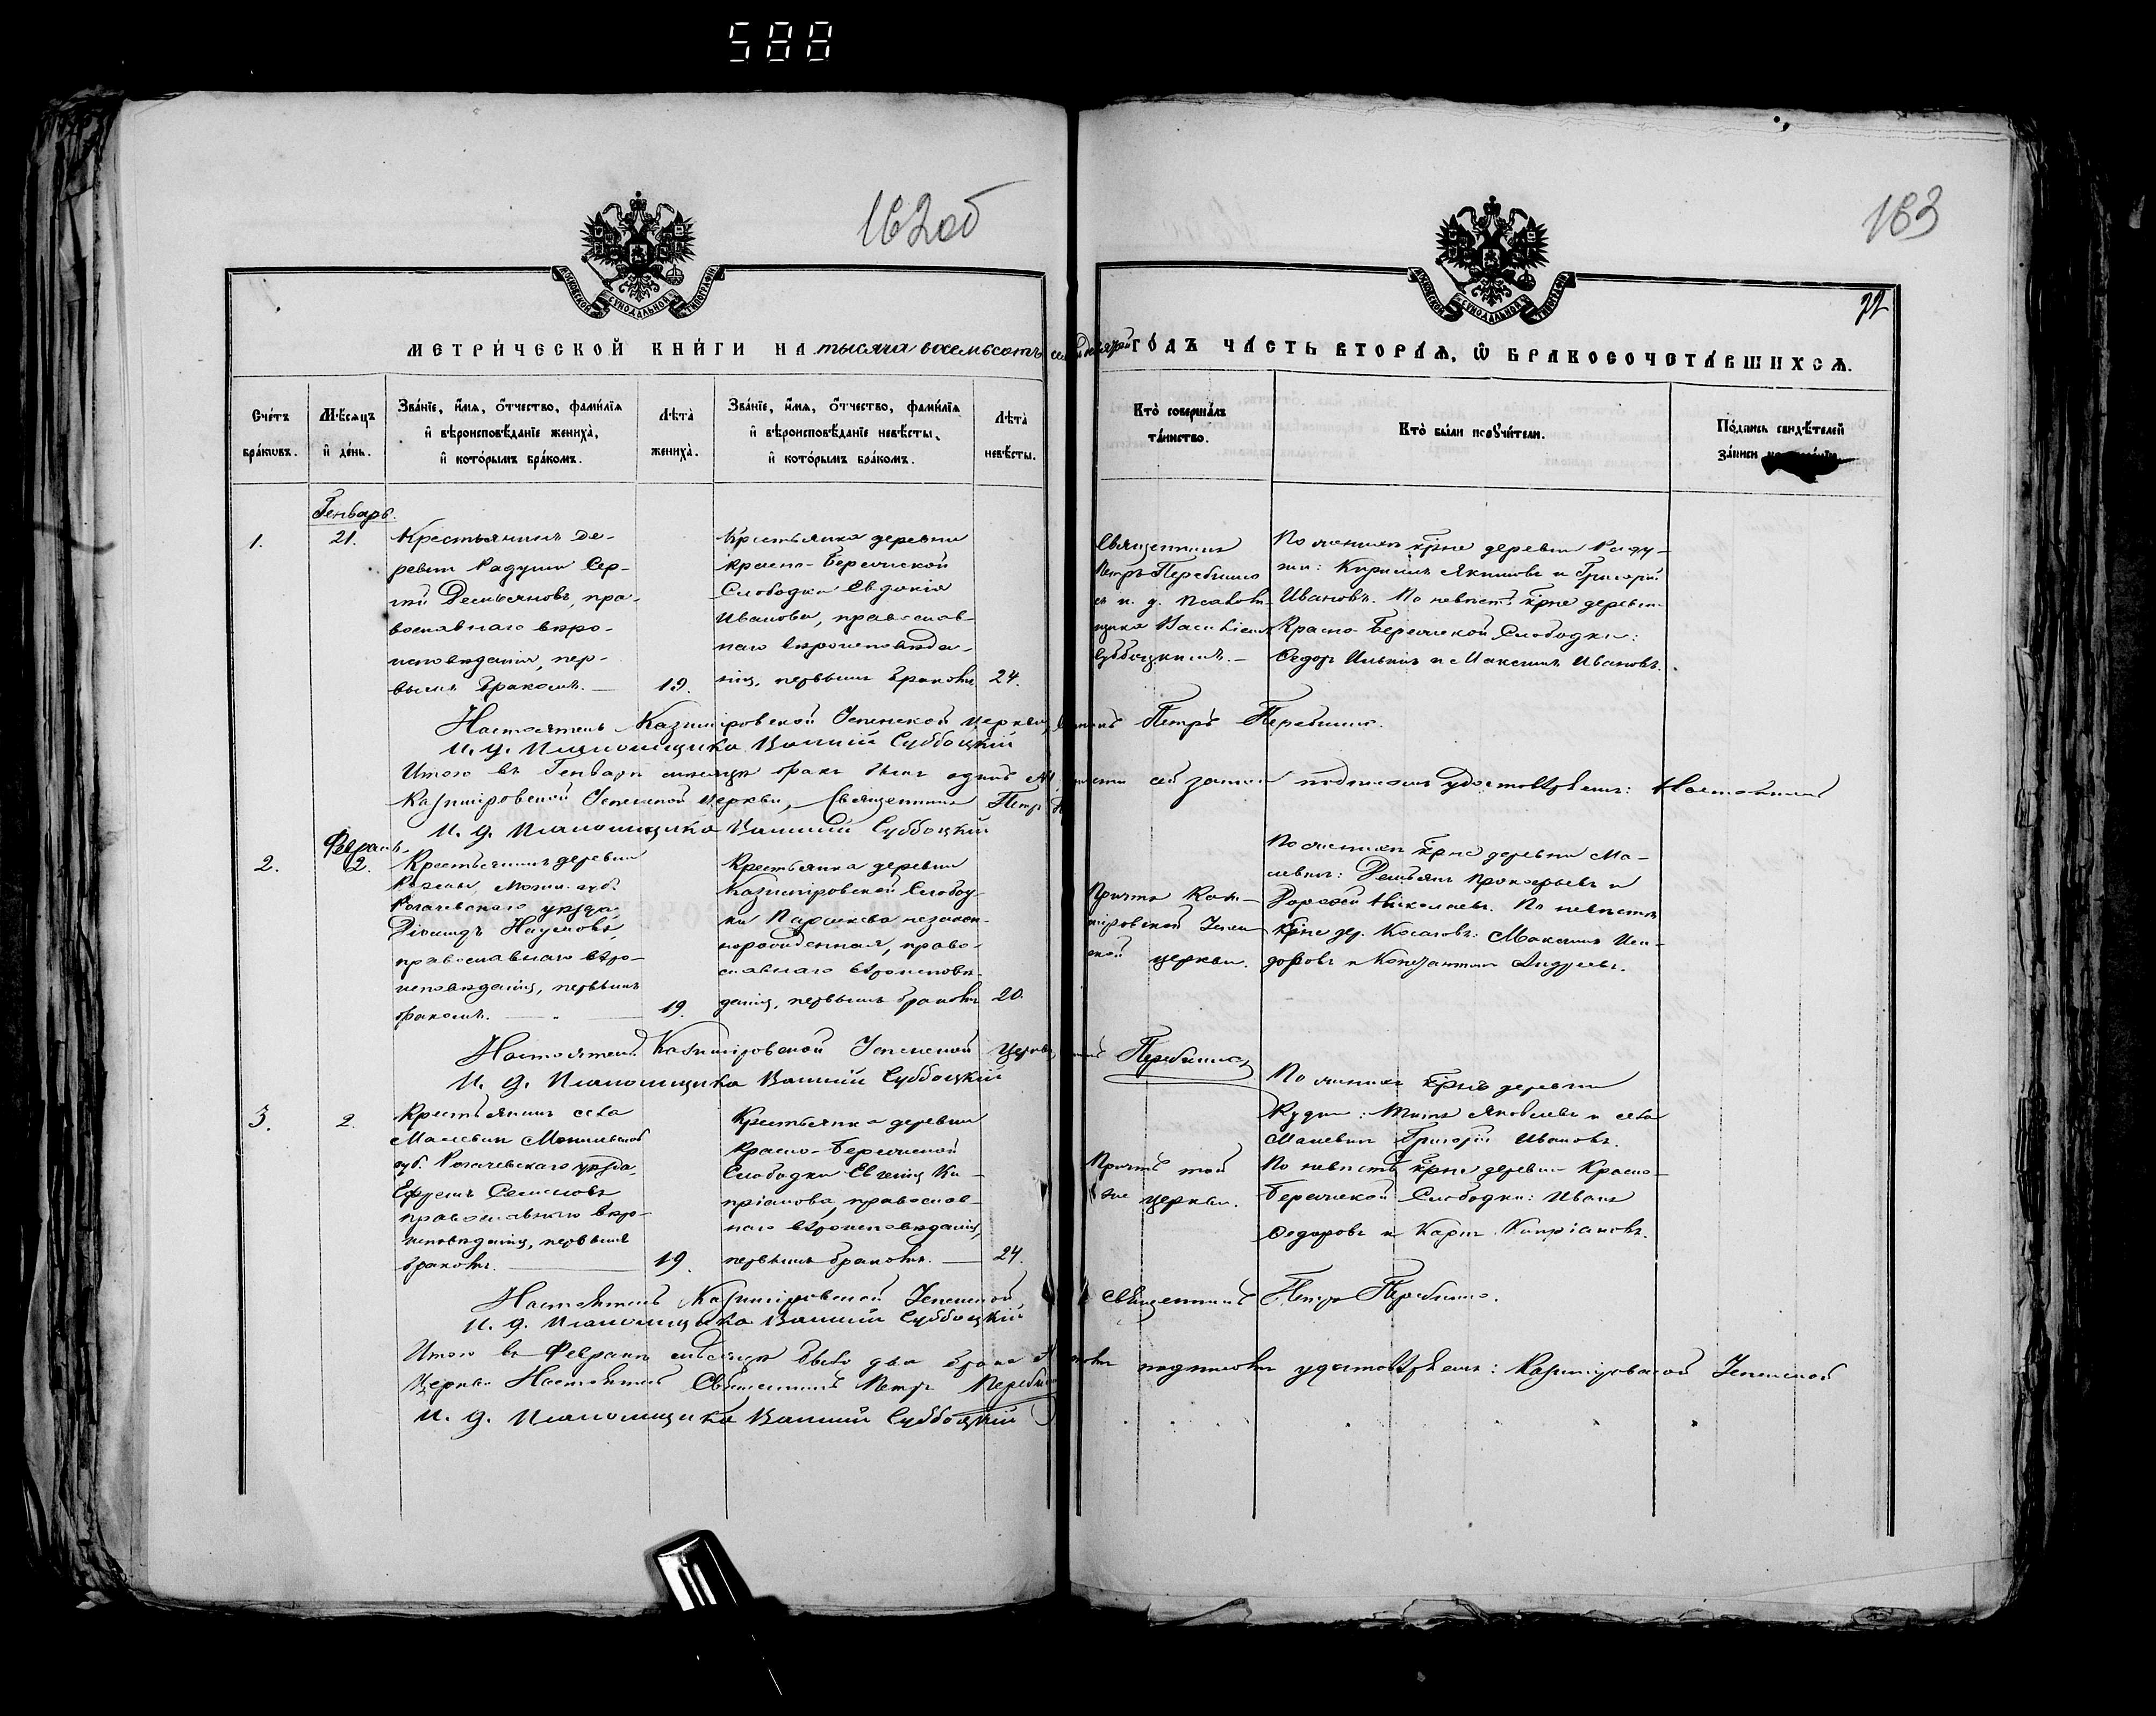 588
162об
183
22
МЕТРИЧЕСКОЙ КНИГИ НА тысяча восемьсотъ ГОДЪ ЧАСТЬ ВТОРАЯ, Ѿ БРАКОСОЧЕТАВШИХСЯ.
Счетъ браковъ.
Мѣсяцъ и день.
Званіе, имя, отчество, фамилія и вѣроисповѣданіе жениха, и которымъ бракомъ.
Лѣта жениха.
Званіе, имя, отчество, фамилія и вѣроисповѣданіе невѣсты, и которымъ бракомъ.
Лѣта невѣсты.
Кто совершалъ таинство.
Кто были поручители.
Подпись свидѣтелей записи
Генварь.
1.
21.
Крестьянинъ де-
ревни Радуши Сер-
гѣй Демьяновъ, пра-
вославнаго вѣро-
исповѣданія, пер-
вымъ бракомъ.
19.
Крестьянка деревни
Красно-Березской
Слободки Евдокія
Иванова, православ-
наго вѣроисповѣда-
нія, первымъ бракомъ
24.
Священникъ
Петръ
съ и. д. псалом-
щика Василіемъ
Субоцкимъ.
По женихѣ крѣне деревни Раду-
ши: Кириллъ Якимовъ и Григорій
Ивановъ. По невѣстѣ крѣне деревни
Красно-Березской Слободки:
Ѳедоръ Ильинъ и Максимъ Ивановъ.
Настоятель Казимировской Успенской церкви, Петръ
И. д. Псаломщика Василій Субботцкій
Итого въ Генварѣ мѣсяцѣ бракъ былъ одинъ сей записи подписомъ удостовѣряемъ: Настоятель
Казимировской Успенской церкви, Священникъ Петръ
И. д. Псаломщика Василій Субботцкій
Февраль.
2.
2.
Крестьянинъ деревни
Могил. губ.
Рогачевскаго уѣзда
Діомидъ Наумовъ,
православнаго вѣро-
исповѣданія, первымъ
бракомъ.
19.
Крестьянка деревни
Казимировской Слобод-
ки Параскева незакон-
норожденная, право-
славнаго вѣроисповѣ-
данія, первымъ бракомъ
20.
Причтъ Кази-
мировской Успен-
ской церкви.
По женихѣ крѣне деревни Ма-
левич: Демьянъ Прокофьевъ и
Дорофей Николаевъ. По невѣстѣ
крѣне дер. Косаковъ: Максимъ Иси-
доровъ и Константинъ Андреевъ.
Настоятель Казимировской Успенской Церкви
И. д. Псаломщика Василій Субботцкій
3.
2.
Крестьянинъ села
Малевич Могилевской
губ. Рогачевскаго уѣзда
Ефремъ Семеновъ
православнаго вѣро-
исповѣданія, первымъ
бракомъ.
19.
Крестьянка деревни
Красно-Березской
Слободки Евгенія Ки-
пріанова, православ-
наго вѣроисповѣданія,
первымъ бракомъ.
24.
Причтъ той
же церкви.
По женихѣ крѣне деревни
Рудни: Титъ Яковлевъ и села
Малевич Григорій Ивановъ.
По невѣстѣ крѣне деревни Красно-
Березской Слободки: Иванъ
Ѳедоровъ и Карпъ Кипріановъ.
Настоятель Казимировской Успенской Священникъ Петръ
И. д. Псаломщика Василій Субботцкій
Итого въ Февралѣ мѣсяцѣ было два брака подписомъ удостовѣряемъ: Казимировской Успенской
Церкви Настоятель Священникъ Петръ
И. д. Псаломщика Василій Субботцкій